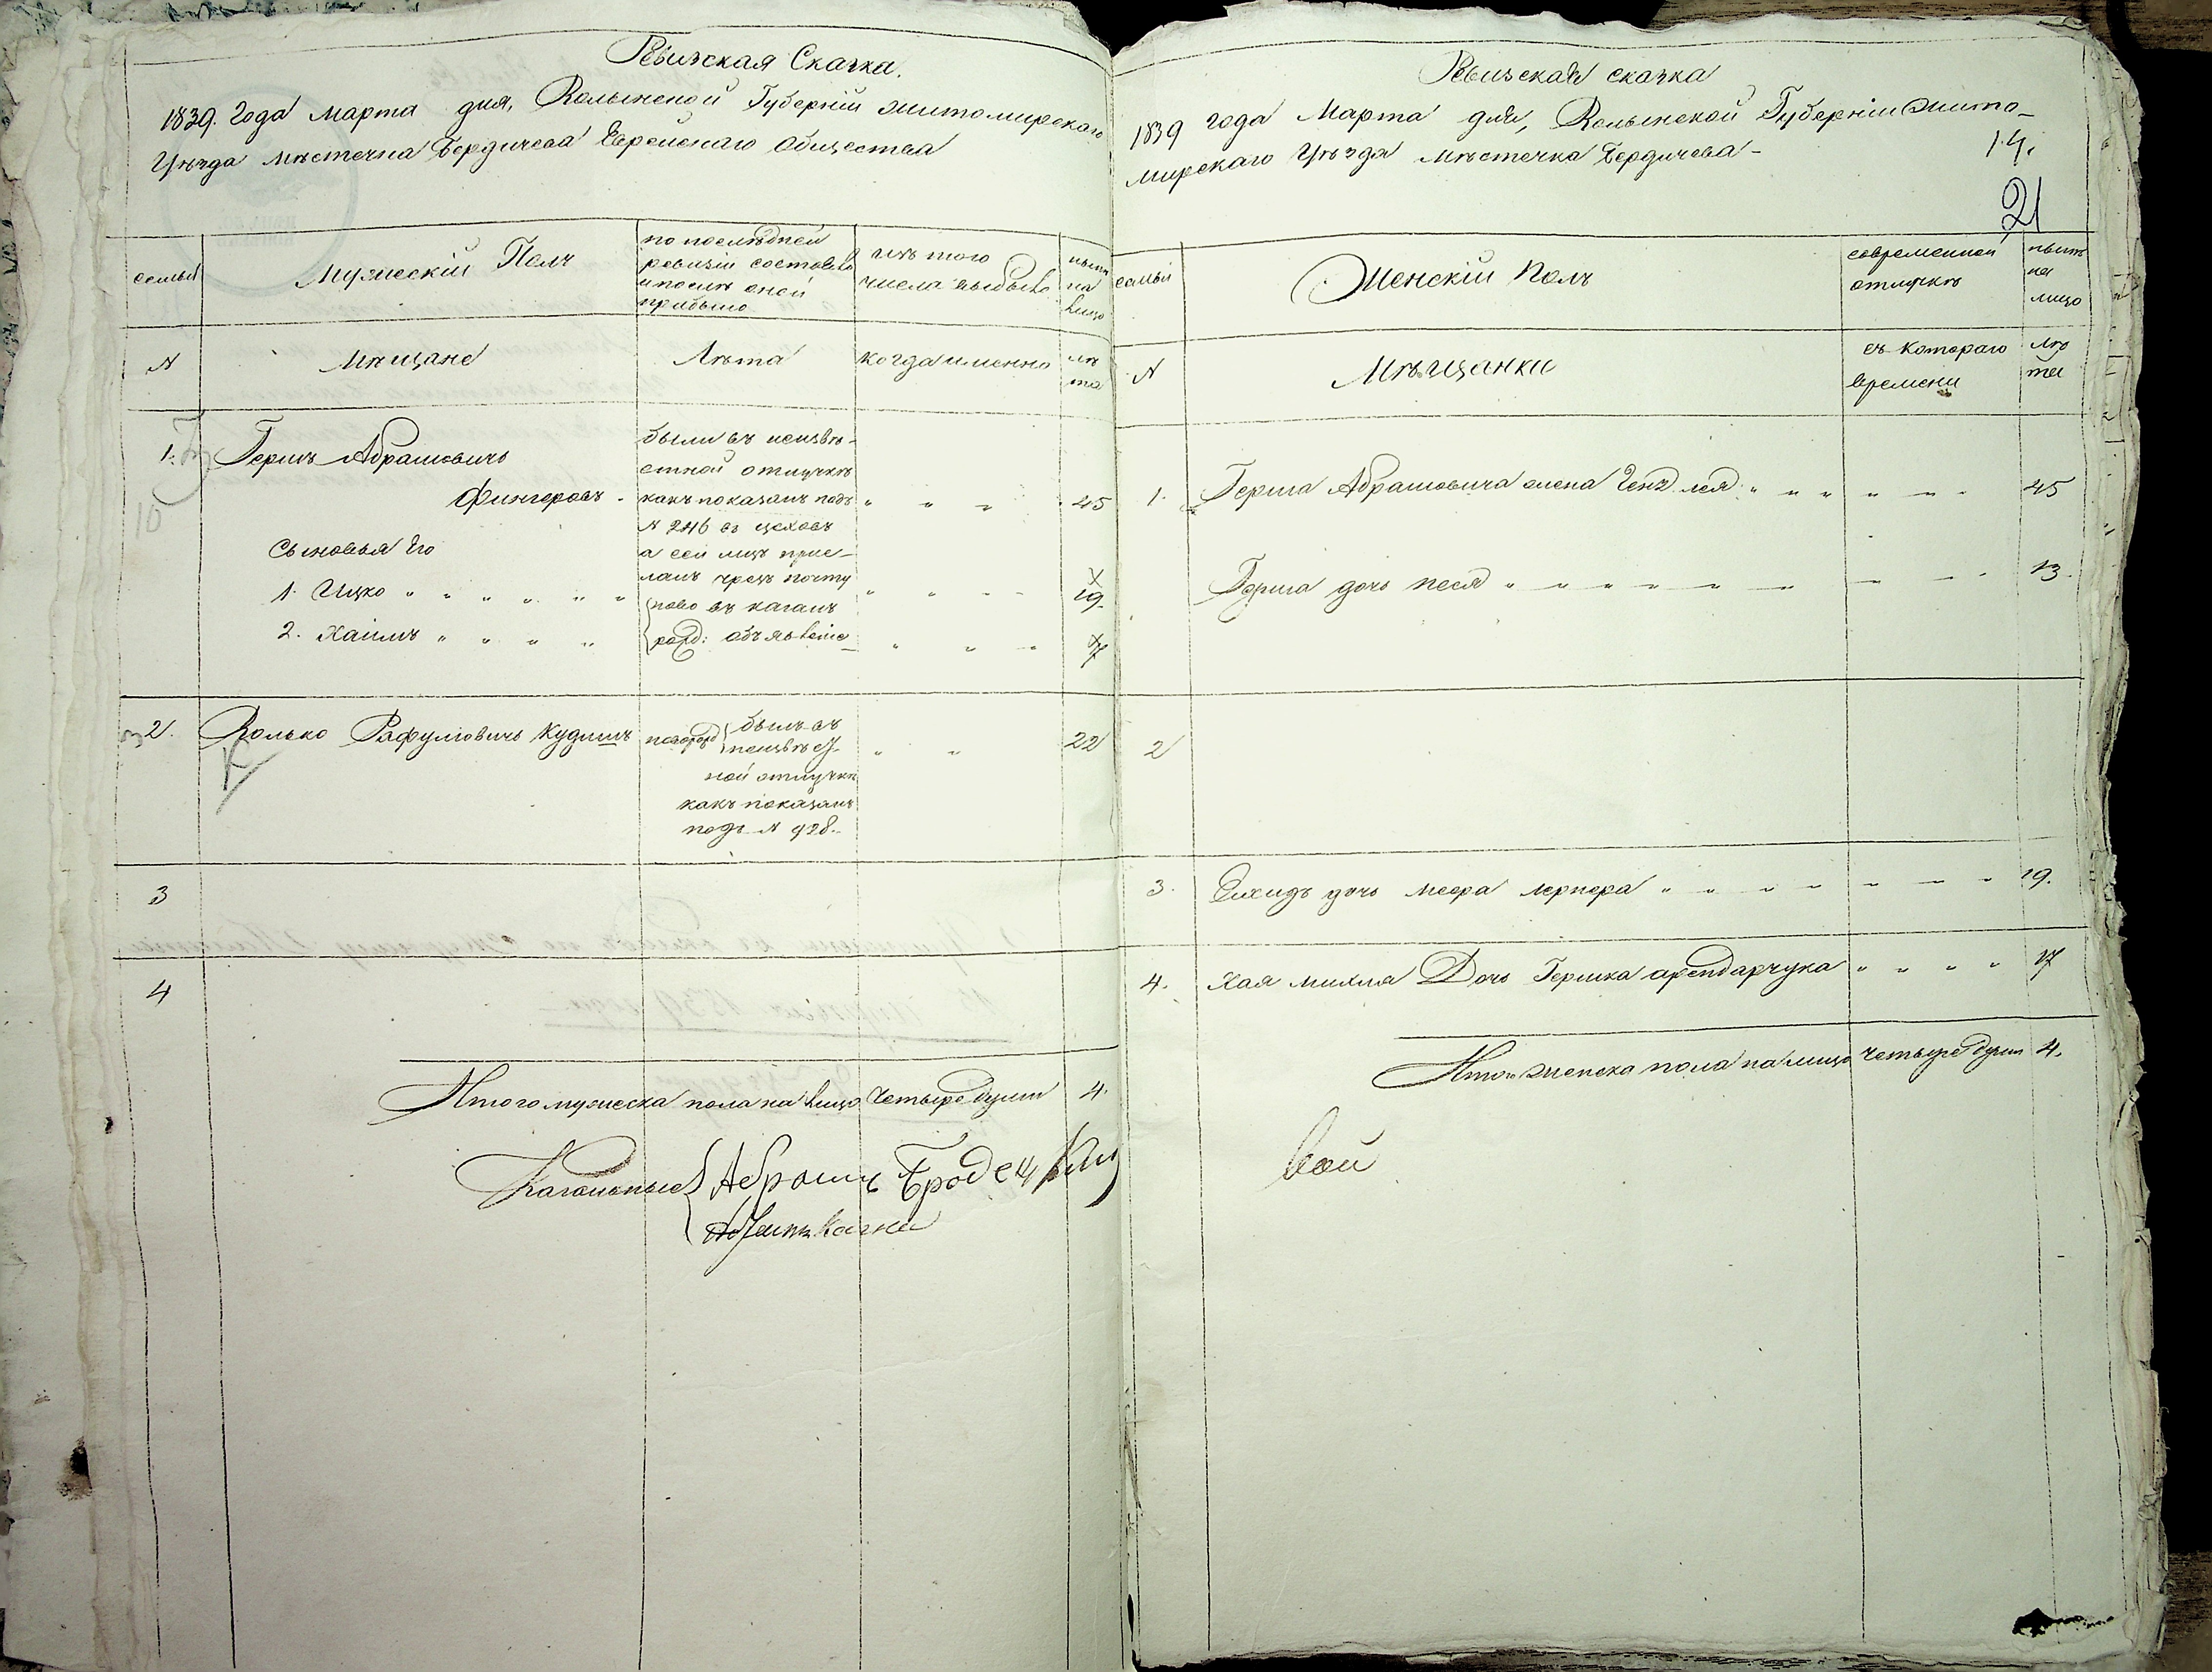 Ревизская Сказка.
1839. Года Марта дня, Волынской Губерніи Житомирскаго
Уѣзда Мѣстечка Бердичева Еврейскаго Общества
семьи
Мужескій Полъ
по послѣдней
ревизіи состояло
и послѣ оной
прибыло
изъ того
числа выбыло
нынѣ
на
лицо
N
Мѣщане
Лѣта
когда именно
лѣ
та
1.
Гершъ Абрамовичъ
Фингеровъ
были въ неизвѣ-
стной отлучкѣ
какъ показанъ подъ
N 246 въ цеховъ
а сей лицъ
чрезъ почту
45
10
Сыновья Его
1. Ицко " " " " " "
ново въ кагалъ
19
2. Хаимъ " " " "
рожд: объявленіе
7
2.
Волько Рафуловичъ Кудишъ
новорожд
былъ въ
неизвѣст-
ной отлучкѣ
какъ показанъ
подъ N 428.
22
К
3
4
Итого мужеска пола на лицо четыре душъ 4.
Кагальные
Абрамъ Бродецкій
Ревизская сказка
1839 года Марта дня, Волынской Губерніи Жито-
мирскаго Уѣзда Мѣстечка Бердичева-
14.
21
семьи
Женскій Полъ
временной
отлучкѣ
нынѣ
на
лицо
N
Мѣщанки
съ котораго
времени
лѣ
та
1.
Герша Абрамовича жена Гендлея " " " " " "
45
Герша дочь песя " " " " " "
13.
2
3.
дочь меера лернера " " " " " " "
19.
4.
Хая михля Дочь Гершка арендарчука " " " "
17
Итого женска пола на лицо четыре душъ 4.
вой